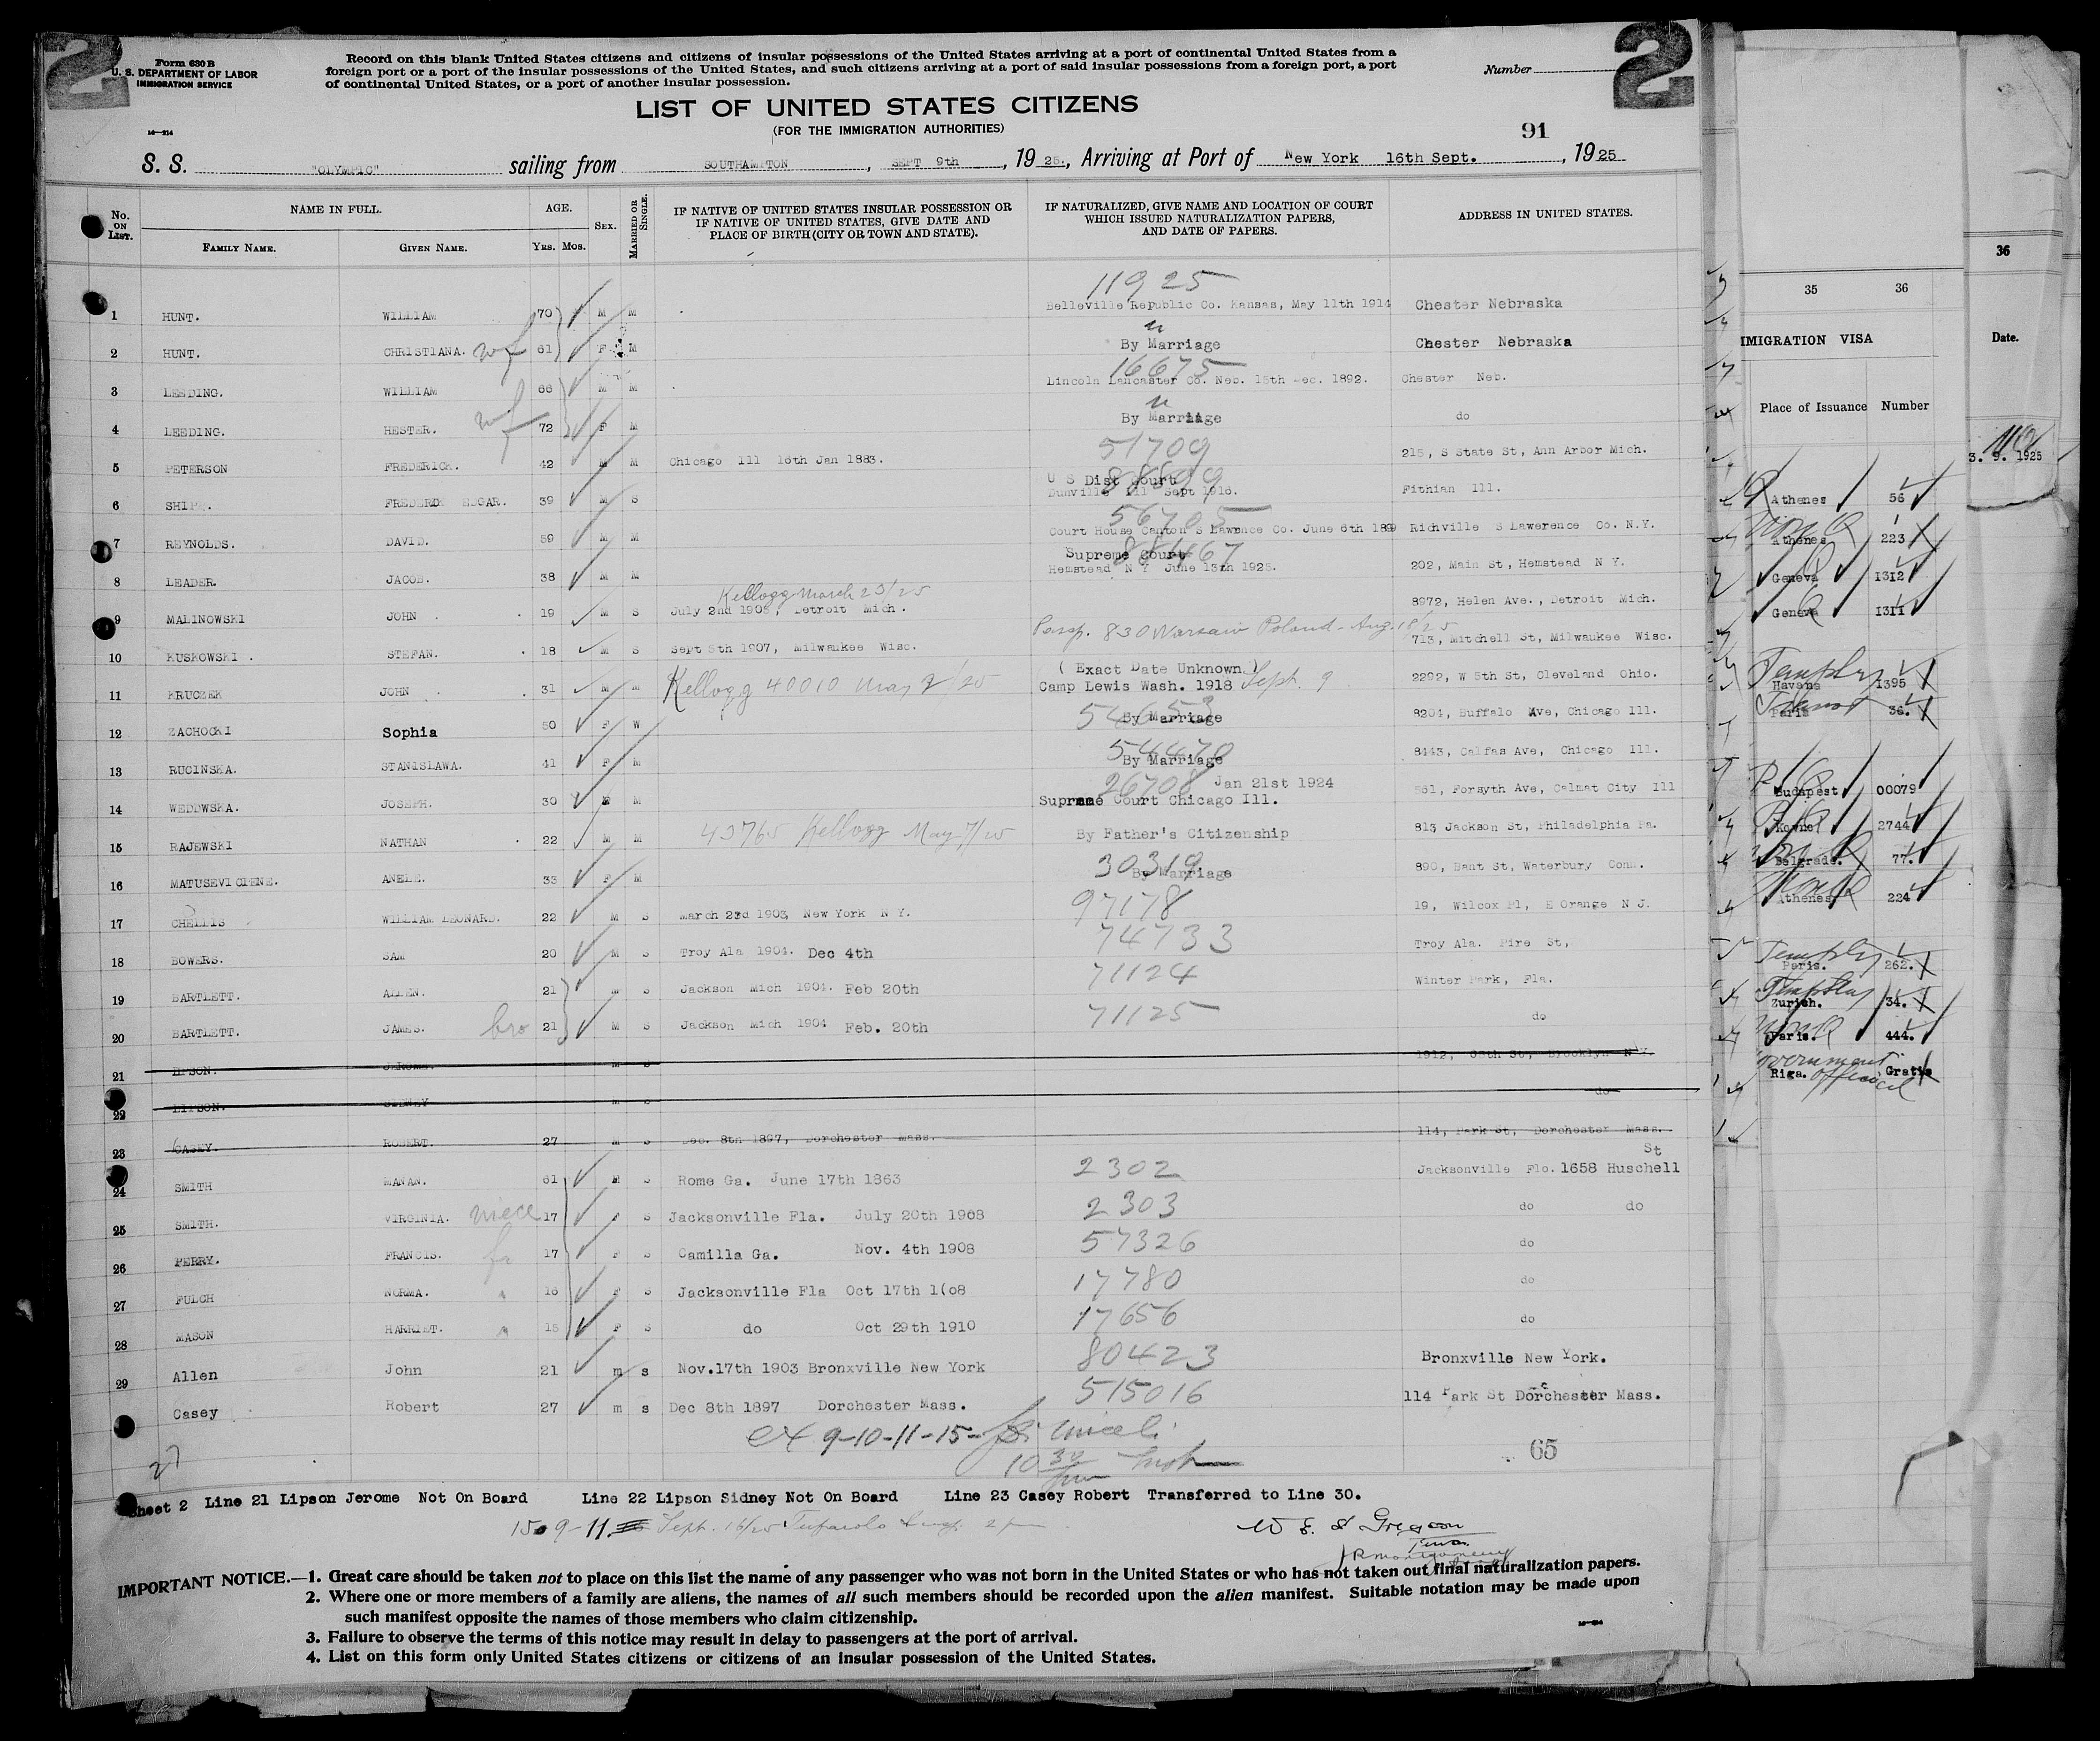 2 2
Form 630 B
U. S. DEPARTMENT OF LABOR
IMMIGRATION SERVICE
Record on this blank United States citizens and citizens of insular possessions of the United States arriving at a port of continental United States from a
foreign port or a port of the insular possessions of the United States, and such citizens arriving at a port of said insular possessions from a foreign port, a port
of continental United States, or a port of another insular possession.
Number
LIST OF UNITED STATES CITIZENS
(FOR THE IMMIGRATION AUTHORITIES)
14—214
91
S. S. "OLYMPIC" sailing from SOUTHAMPTON, SEPT 9th, 1925., Arriving at Port of New York 16th Sept., 1925
No. ON LIST. NAME IN FULL. AGE. SEX. MARRIED OR SINGLE. IF NATIVE OF UNITED STATES INSULAR POSSESSION OR IF NATIVE OF UNITED STATES, GIVE DATE AND PLACE OF BIRTH (CITY OR TOWN AND STATE). IF NATURALIZED, GIVE NAME AND LOCATION OF COURT WHICH ISSUED NATURALIZATION PAPERS, AND DATE OF PAPERS. ADDRESS IN UNITED STATES.
FAMILY NAME. GIVEN NAME. YRS. MOS.
11925
1 HUNT. WILLIAM 70 M M Belleville Republic Co. Kansas, May 11th 1914 Chester Nebraska
2 HUNT. CHRISTIANA. wf 61 F M By Marriage Chester Nebraska
16675
3 LEEDING. WILLIAM 66 M M Lincoln Lancaster Co. Neb. 15th Dec. 1892. Chester Neb.
4 LEEDING. HESTER. wf 72 F M By Marriage do
51709
5 PETERSON FREDERICK. 42 M M Chicago Ill 16th Jan 1883. 215, S State St, Ann Arbor Mich.
6 FREDERICK EDGAR. 39 M S U S Dist Court Sept 1918. Fithian Ill.
56705
7 REYNOLDS. DAVID. 59 M M Court House Canton S Lawrence Co. June 6th 189 Richville S Lawerence Co. N.Y.
88467
8 LEADER. JACOB. 38 M M Supreme Court Hemstead N Y June 13th 1925. 202, Main St, Hemstead N Y.
Kellogg March 23/25
9 MALINOWSKI JOHN 19 M S July 2nd 1906, Detroit Mich. 8972, Helen Ave., Detroit Mich.
Passp. 830 Warsaw Poland - Aug. 18/25
10 KUSKOWSKI. STEFAN. 18 M S Sept 5th 1907, Milwaukee Wisc. 713, Mitchell St, Milwaukee Wisc.
11 KRUCZEK JOHN 31 M M Kellogg 40010 May 2/25 (Exact Date Unknown) Camp Lewis Wash. 1918 Sept. 9 2292, W 5th St, Cleveland Ohio.
12 ZACHOCKI Sophia 50 F W By Marriage 8204, Buffalo Ave, Chicago Ill.
54470
13 RUCINSKA. STANISLAWA. 41 F M By Marriage 8443, Calfas Ave, Chicago Ill.
26708 Jan 21st 1924
14 WEDDWSKA. JOSEPH. 30 M M Supreme Court Chicago Ill. 561, Forsyth Ave, Calmat City Ill
15 RAJEWSKI NATHAN 22 M M 43765 Kellogg May 7/25 By Father's Citizenship 813 Jackson St, Philadelphia Pa.
30319
16 MATUSEVICIENE. ANELE. 33 F M By Marriage 890, Bant St, Waterbury Conn.
17 CHELLIS WILLIAM LEONARD. 22 M S March 23d 1903, New York N Y. 97178 19, Wilcox Pl, E Orange N J.
18 BOWERS. SAM 20 M S Troy Ala 1904. Dec 4th 74733 Troy Ala. Pire St,
19 BARTLETT. ALLEN. 21 M S Jackson Mich 1904. Feb 20th 71124 Winter Park, Fla.
20 BARTLETT. JAMES. bro 21 M S Jackson Mich 1904 Feb. 20th 71125 do
21 LIPSON. JEROME. M S Brooklyn N Y.
22 LIPSON. SIDNEY M S do
23 CASEY. ROBERT. 27 M S Dec. 8th 1897, Dorchester Mass. 114, Park St, Dorchester Mass.
24 SMITH MANAN. 61 S Rome Ga. June 17th 1863 2302 Jacksonville Flo. 1658 Huschell St
25 SMITH. VIRGINIA. niece 17 F S Jacksonville Fla. July 20th 1908 2303 do do
26 PERRY. FRANCIS. 17 F S Camilla Ga. Nov. 4th 1908 57326 do
27 FULCH NORMA. 16 F S Jacksonville Fla Oct 17th 1(o8 17780 do
28 MASON HARRIET. 15 F S do Oct 29th 1910 17656 do
29 Allen John 21 m s Nov.17th 1903 Bronxville New York 80423 Bronxville New York.
Casey Robert 27 m s Dec 8th 1897 Dorchester Mass. 515016 114 Park St Dorchester Mass.
ex 9-10-11-15-
27
65
Sheet 2 Line 21 Lipson Jerome Not On Board Line 22 Lipson Sidney Not On Board Line 23 Casey Robert Transferred to Line 30.
Sept. 16/25
IMPORTANT NOTICE.—1. Great care should be taken not to place on this list the name of any passenger who was not born in the United States or who has not taken out final naturalization papers.
2. Where one or more members of a family are aliens, the names of all such members should be recorded upon the alien manifest. Suitable notation may be made upon
such manifest opposite the names of those members who claim citizenship.
3. Failure to observe the terms of this notice may result in delay to passengers at the port of arrival.
4. List on this form only United States citizens or citizens of an insular possession of the United States.
35 36
IMIGRATION VISA
Place of Issuance Number
Athenes 56
Athenes 223
Geneva 1312
Geneva 1311
Havana 1395
Paris 36.
Budapest 00079
Kowno 2744
Belgrade. 77.
Athenes 224
Paris. 262.
Zurich. 34.
Paris. 444.
Riga. Gratis
Government official
36
Date.
3. 9. 1925